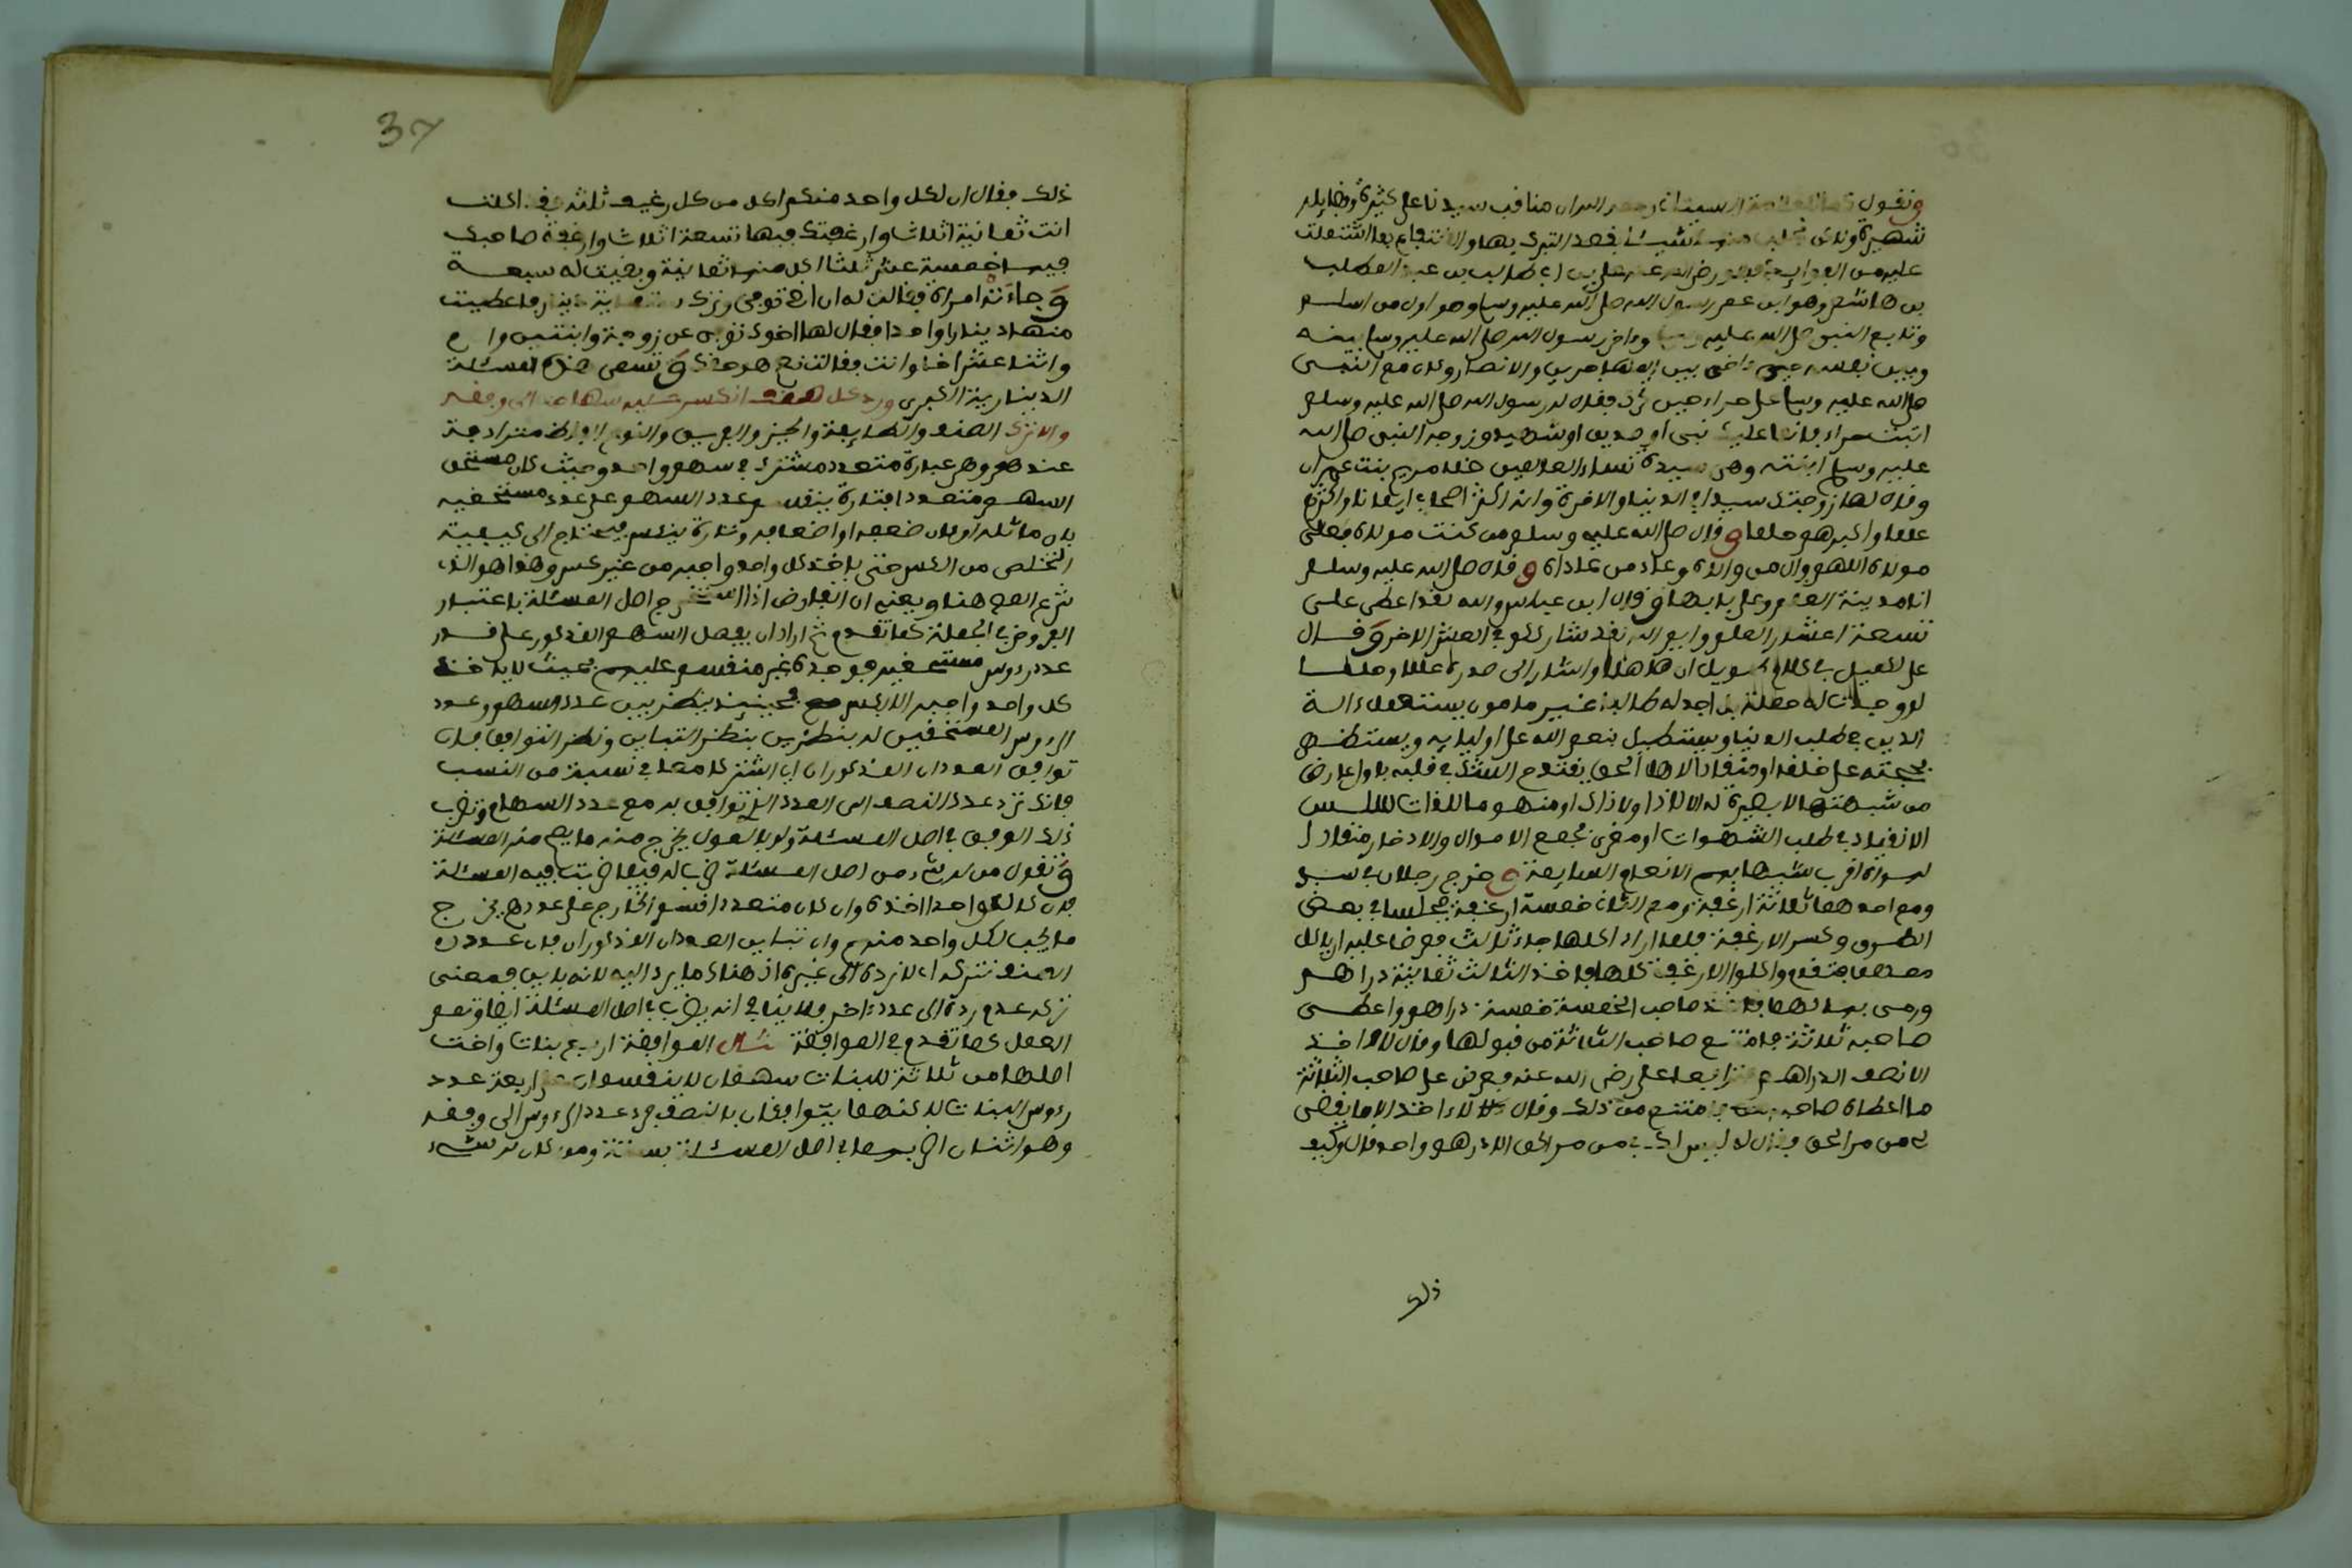 ونقول قال العلامة السبتاني رحمه الله ان مناقب سيدنا علي كثيرة وفضايله
شهيرة ولاكن نجلب منها شيئا بقصد التبرك بها والانتفاع بما اشتملت
عليه من الفوايد فهو رضي الله عنه علي بن ابي طالب بن عبد المطلب
بن هاشم وهو ابن عم رسول الله صلى الله عليه وسلم وهو اول من اسلم
وتابع النبي صلى الله عليه وسلم وءاخى رسول الله صلى الله عليه وسلم بينه
وبين نفسه حين ءاخى بين المهاجرين والانصار وكان مع النبي
صلى الله عليه وسلم على حراء حين تحرك فقال له رسول الله صلى الله عليه وسلم
اثبت حراء فما عليك نبي او صديق او شهيد وزوجه النبي صلى الله
عليه وسلم ابنته وهي سيدة نساء العالمين خلا مريم بنت عمران
وقال لها زوجتك سيدا في الدنيا والاخرة وانه اكثر اصحابي ايمانا واكثرهم
علما واكبرهم حلما وقال صلى الله عليه وسلم من كنت مولاه فعلي
مولاه اللهم وال من والاه وعاد من عاداه وقال صلى الله عليه وسلم
انا مدينة العلم وعلي بابها وقال ابن عباس والله لقد اعطي علي
تسعة اعشار العلم وايم الله لقد شارككم في العشر الاخر وقال
علي لكميل في كلام طويل ان هاهنا واشار الى صدره علما
لو وجدت له حملة بل اجد له طالبا غير مامون يستعمل ءالة
الدين في طلب الدنيا ويستطيل بنعم الله على اوليايه ويستظهر
بحجته على خلقه او منقادا لاهل الحق ينقدح الشك في قلبه باول عارض
من شبهة لا بصيرة له الا لا ذا ولا ذاك او منهوما باللذات سلس
الانقياد في طلب الشهوات او مغرى بجمع الاموال والادخار
اقرب شبها بهم الانعام السايمة وخرج رجلان في سفر
ومع احدهما ثلاثة ارغفة ومع الثاني خمسة ارغفة فجلسا في بعض
الطريق وكسر الارغفة فلما ارادا اكلها جاء ثالث فعرضا عليه ان ياكل
معهما فتقدم واكلوا الارغفة كلها فاخذ الثالث ثمانية دراهم
ورمى بها لهما فاخذ صاحب الخمسة خمسة دراهم واعطى
صاحبه ثلاثة فامتنع صاحب الثلاثة من قبولها وقال لا اخذ
الا نصف الدراهم فترافعا لعلي رضي الله عنه فعرض على صاحب الثلاثة
ما اعطاه صاحبه فامتنع من ذلك وقال لا ءاخذ الا ما يقضى
لي من مر الحق فقال له ليس لك في من مر الحق الا درهم واحد قال وكيف
ذلك
ذلك فقال ان لكل واحد منكم اكل من كل رغيف ثلثه فقد اكلت
انت ثمانية اثلاث وارغفتك فيها تسعة اثلاث وارغفة صاحبك
فيها خمسة عشر ثلثا اكل منها ثمانية وبقيت له سبعة
وجاءته امراة فقالت له ان اخي توفي وترك ستماية دينار فاعطيت
منها دينارا واحدا فقال لها اخوك توفي عن زوجة وابنتين وام
واثنا عشر اخا وانت فقالت نعم هو حقك وتسمى هذه المسئلة
الدينارية الكبرى ورد كل صنف انكسر عليه سهامه الى وفقه
والاترك الصنف والطايفة والحيز والفريق والنوع الفاظ مترادفة
عندهم وهي عبارة متعدد مشترك في سهم واحد وحيث كان مستحق
السهم متعددا فتارة ينقسم عدد السهم على عدد مستحقيه
بان ماثله او كان ضعفه او اضعافه وتارة ينكسر فيحتاج الى كيفية
التخلص من الكسر حتى ياخذ كل واحد واجبه من غير كسر وهذا هو الذي
شرع المص هنا ويعني ان الفارض اذا استخرج اصل المسئلة باعتبار
الفروض في الجملة كما تقدم ثم اراد ان يفصل السهم المذكور على قدر
عدد رءوس مستحقيه فوجده غير منقسم عليهم بحيث لا ياخذ
كل واحد واجبه الا بكسر فحينيذ ينظر بين عدد السهم وعدد
الرءوس المستحقين له بنظرين بنظر التباين ونظر التوافق فان
توافق العددان المذكوران اي اشتركا معا في نسبة من النسب
فانك ترد عدد الصنف الى العدد الذي توافق به مع عدد السهام وتضرب
ذلك الوفق في اصل المسئلة ولو بالعول يخرج منه ما يصح منه المسئلة
وتقول من له شيء من اصل المسئلة ضرب له فيما ضربت فيه المسئلة
فان كان واحدا اخذه وان كان متعددا اقسم الخارج على عددهم يخرج
ما يجب لكل واحد منهم وان تباين العددان المذكوران فان عدد
الصنف تتركه اي لا ترده الى غيره اذ هناك ما يرد اليه لانه باين فمعنى
تركه عدم رده الى عدد ءاخر فلا ينافي انه يضرب في اصل المسئلة ايضا وتمم
العمل كما تقدم في الموافقة مثال الموافقة اربع بنات واخت
اصلها من ثلاثة للبنات سهمان لا ينقسمان على اربعة عدد
رءوس البنات لاكنهما يتوافقان بالنصف فرد عدد الرءوس الى وفقه
وهو اثنان اضربهما في اصل المسئلة بستة ومن كان له شيء
37